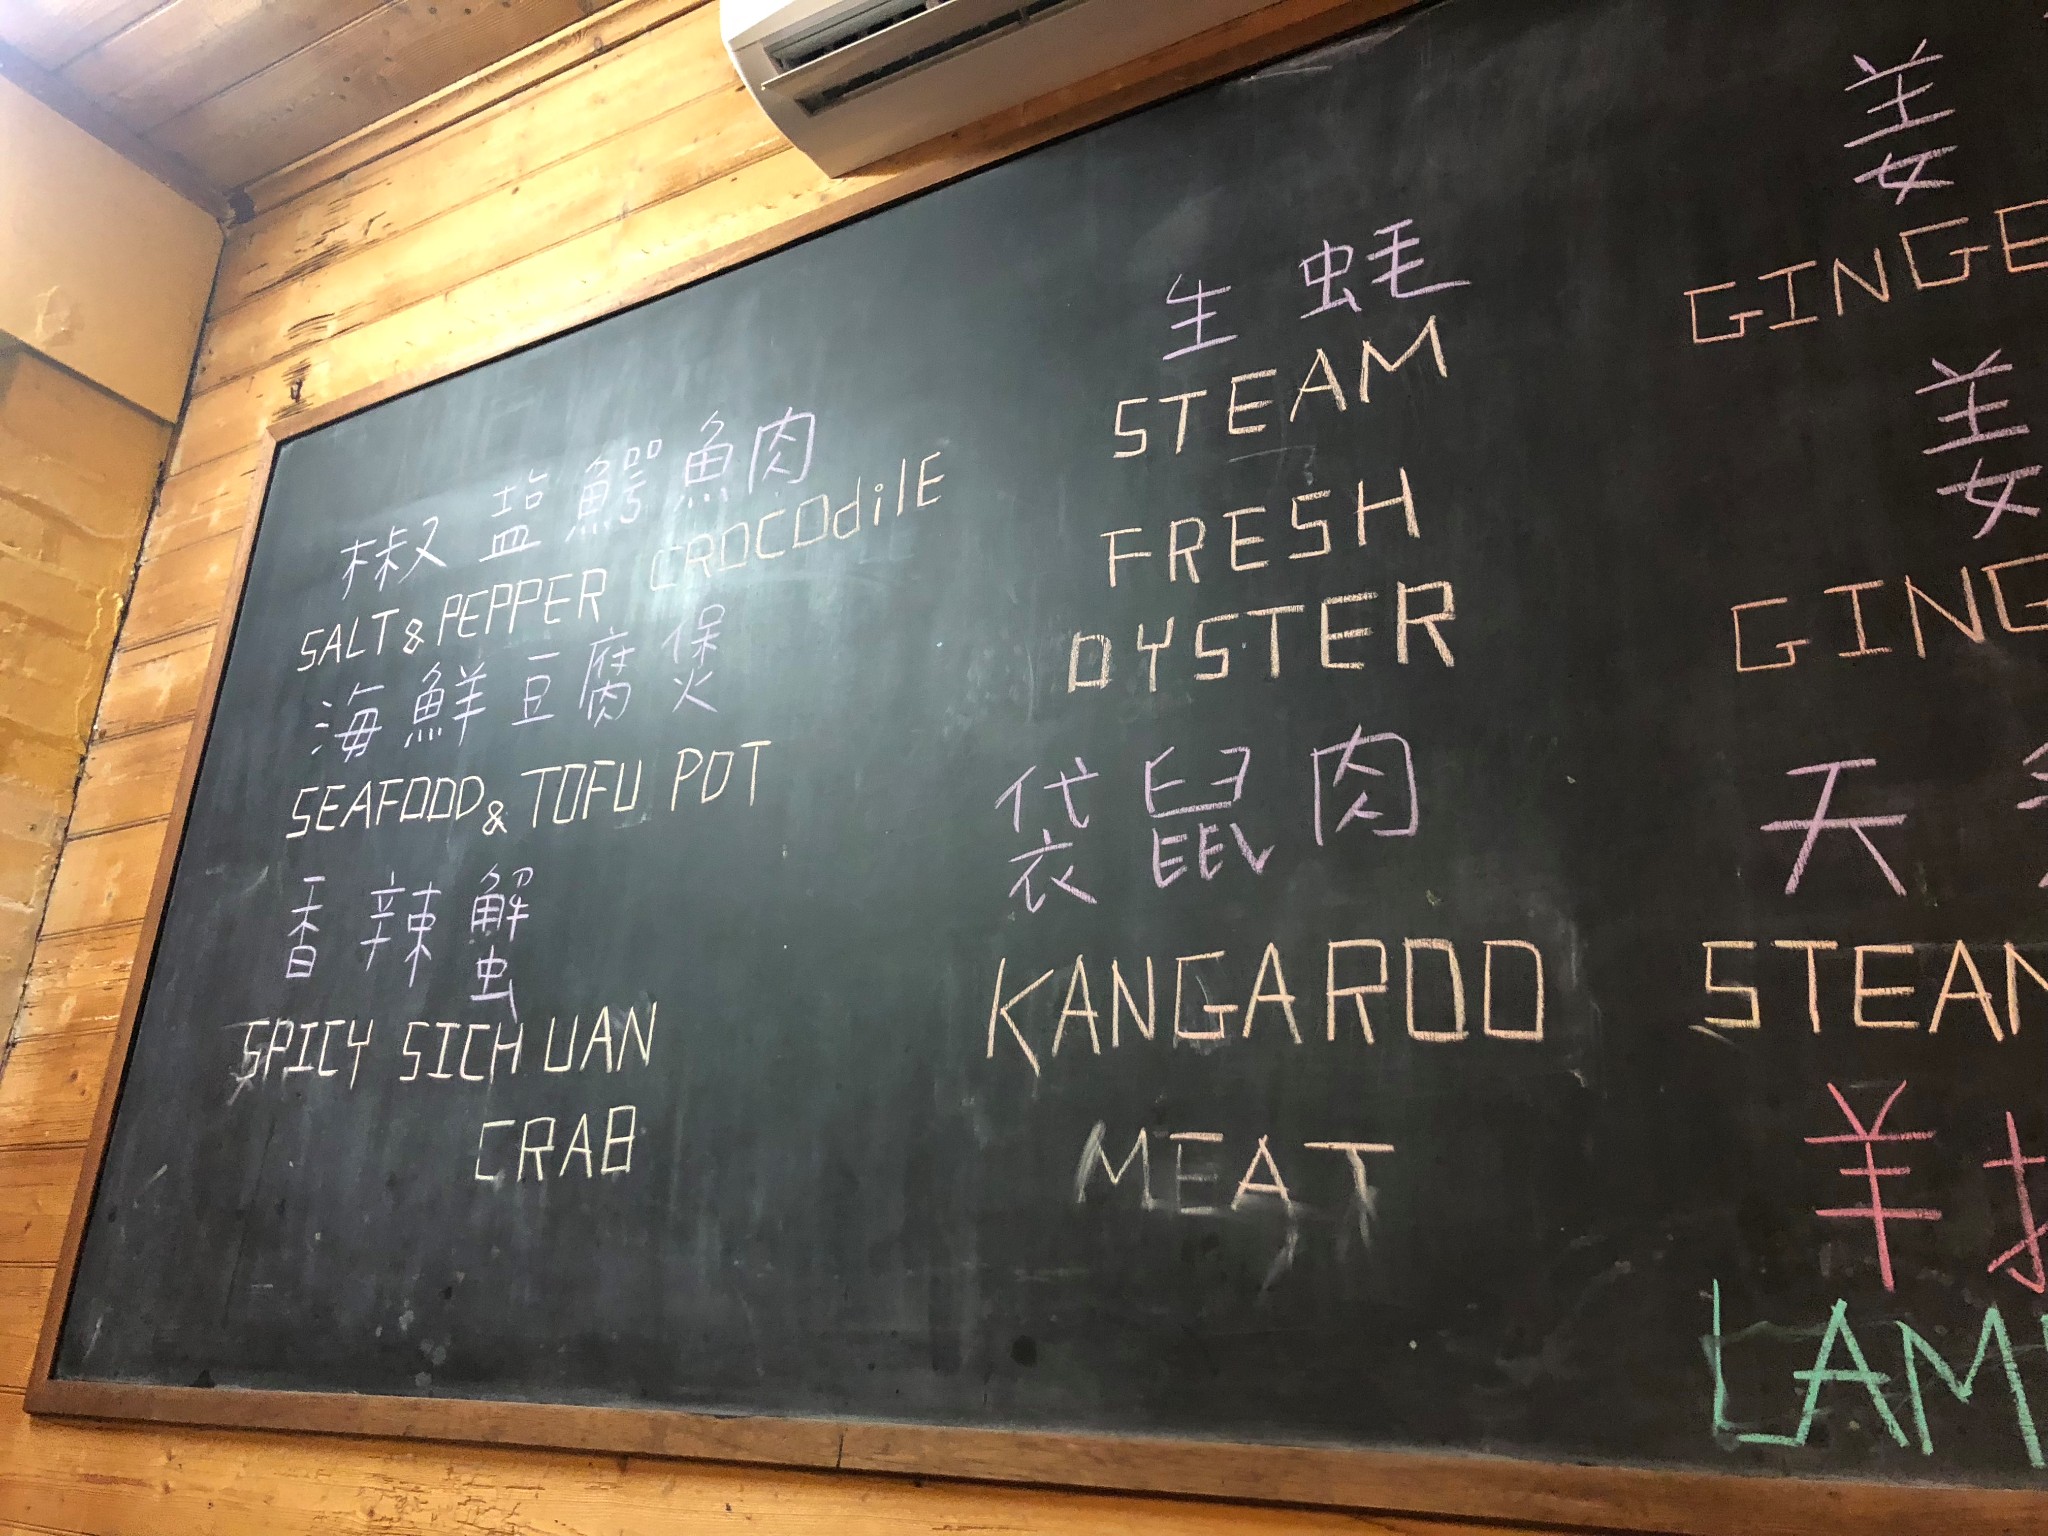 椒盐鳄魚肉
SALT & PEPPER CROCOdilE
海鮮豆腐煲
SEAFOOD & TOFU POT
香辣蟹
SPICY SICHUAN
CRAB
生蚝
STEAM
FRESH
OYSTER
袋鼠肉
KANGAROO
MEAT
姜
GINGE
姜
GING
天
STEAM
羊
LAM